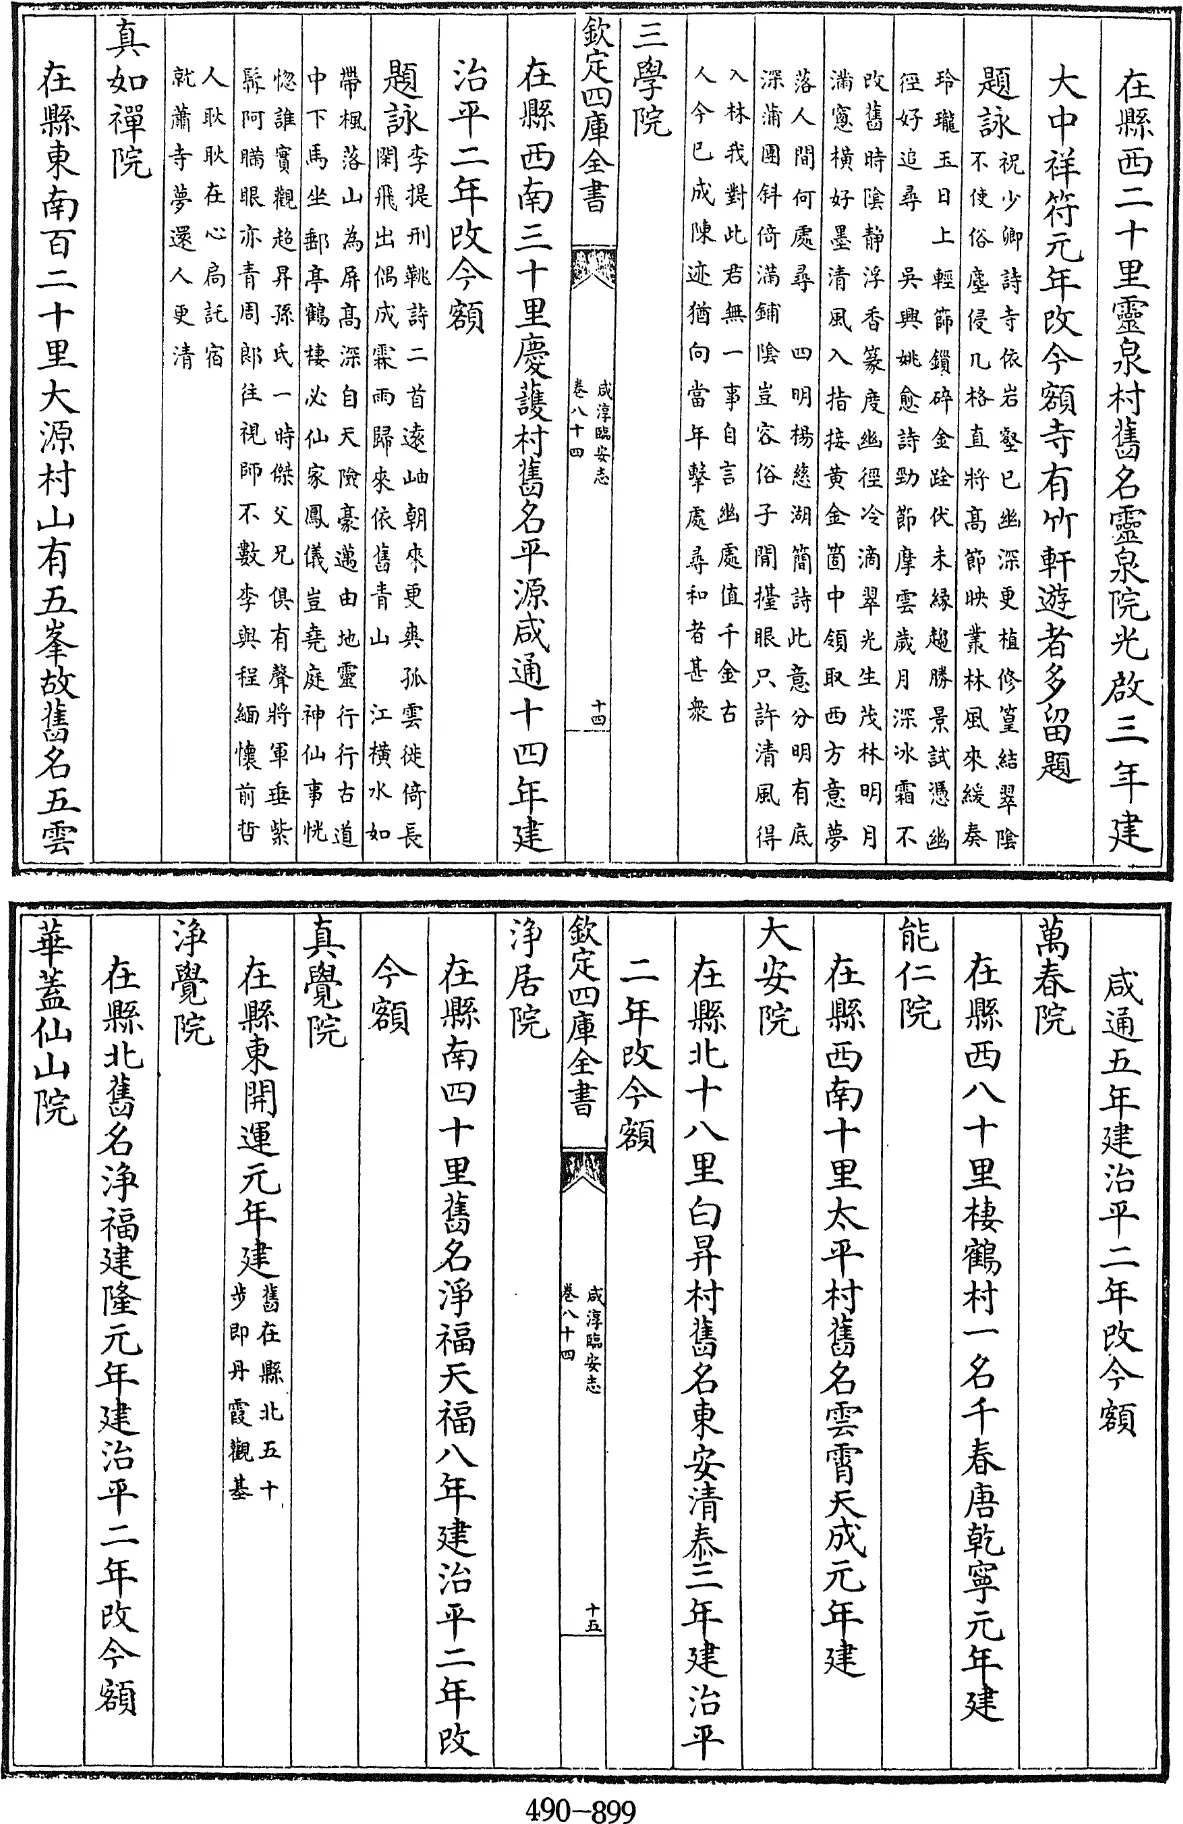 在縣西二十里靈泉村舊名靈泉院光啟三年建
大中祥符元年改今額寺有竹軒遊者多留題
題詠
祝少卿詩寺依岩壑已幽深更植修篁結翠陰
不使俗塵侵几格直將高節映叢林風來緩奏
玲瓏玉日上輕篩鎖碎金跧伏未縁趨勝景試憑幽
徑好追尋 吳興姚愈詩勁節摩雲歲月深冰霜不
改舊時陰静浮香篆度幽徑冷滴翠光生茂林明月
滿窻橫好墨清風入指接黄金箇中領取西方意夢
落人間何處尋 四明楊慈湖簡詩此意分明有底
深蒲團斜倚滿鋪陰豈容俗子閒擡眼只許清風得
入林我對此君無一事自言幽處值千金古
人今已成陳迹猶向當年擊處尋和者甚衆
三學院
欽定四庫全書
咸淳臨安志
卷八十四
十四
在縣西南三十里慶護村舊名平源咸通十四年建
治平二年改今額
題詠
李提刑鞉詩二首遠岫朝來更爽孤雲徙倚長
閑飛出偶成霖雨歸來依舊青山 江橫水如
帶楓落山為屏高深自天險豪邁由地靈行行古道
中下馬坐郵亭鶴棲必仙家鳳儀豈堯庭神仙事恍
惚誰實觀超昇孫氏一時傑父兄俱有聲將軍垂紫
髯阿瞞眼亦青周郎往視師不數李與程緬懷前哲
人耿耿在心扃託宿
就蕭寺夢還人更清
真如禪院
在縣東南百二十里大源村山有五峯故舊名五雲
咸通五年建治平二年改今額
萬春院
在縣西八十里棲鶴村一名千春唐乾寧元年建
能仁院
在縣西南十里太平村舊名雲霄天成元年建
大安院
在縣北十八里白昇村舊名東安清泰三年建治平
二年改今額
欽定四庫全書
咸淳臨安志
卷八十四
十五
淨居院
在縣南四十里舊名淨福天福八年建治平二年改
今額
真覺院
在縣東開運元年建
舊在縣北五十
步即丹霞觀基
淨覺院
在縣北舊名淨福建隆元年建治平二年改今額
華蓋仙山院
490-899